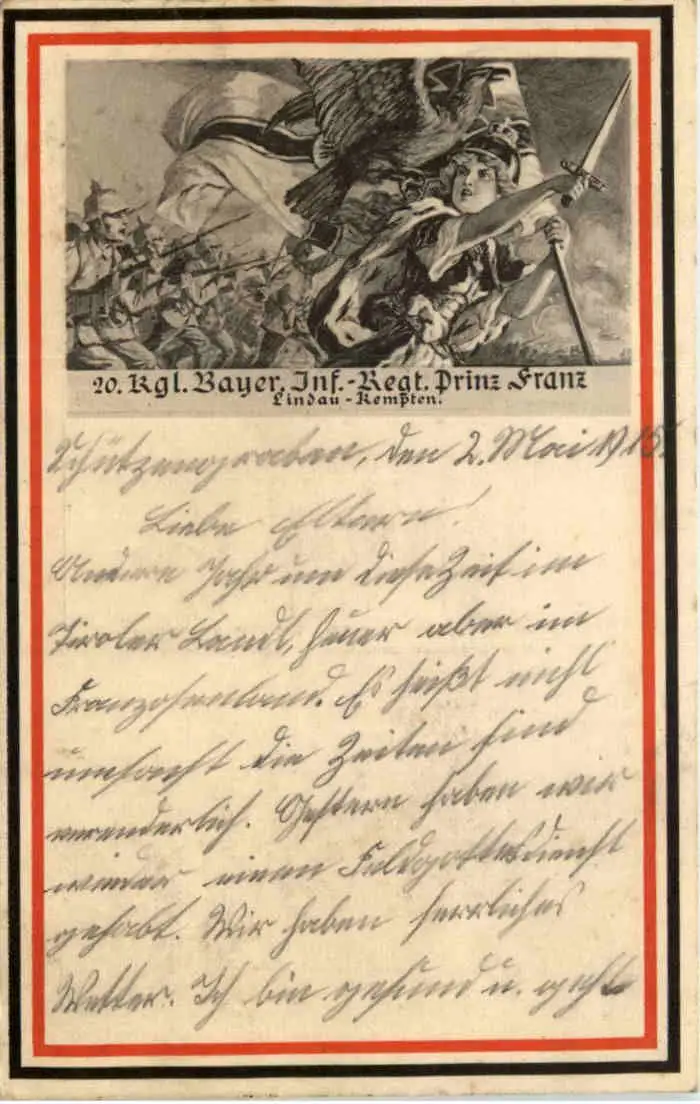 20. Kgl. Bayer. Inf.-Regt. Prinz Franz
Lindau - Kempten.
Schützengraben, den 2. Mai 1915.
Liebe Eltern!
Anderes Jahr um diese Zeit im
Tiroler Landl, heuer aber im
Franzosenland. Es heißt nicht
umsonst die Zeiten sind
verenderlich. Gestern haben wir
wieder einen Feldgottesdienst
gehabt. Wir haben herrliches
Wetter. Ich bin gesund u. geht